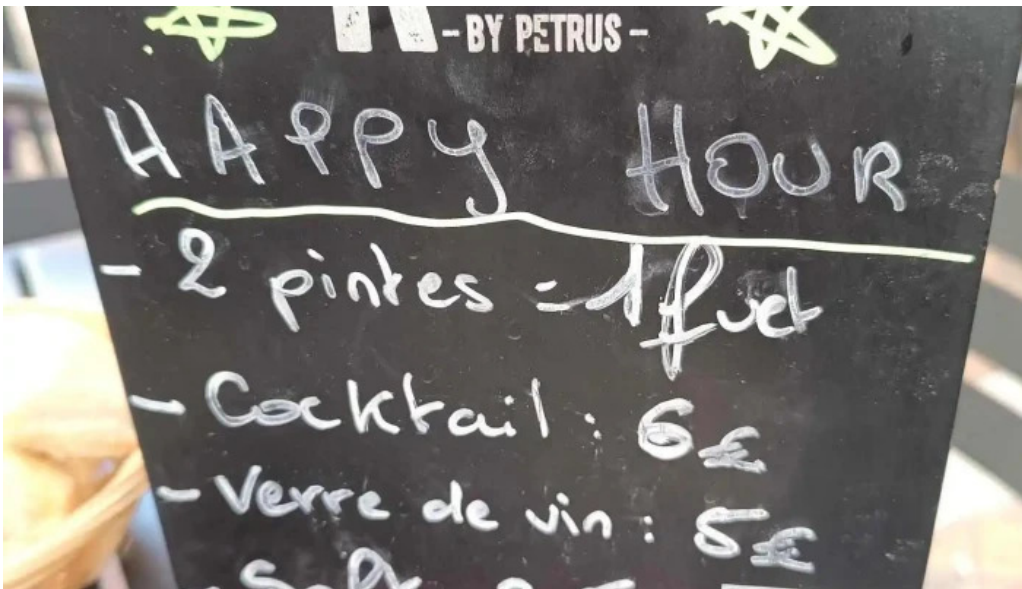 - BY PETRUS -
HAPPY HOUR
- 2 pintes = 1 fuet
- Cocktail : 6€
- Verre de vin : 5€